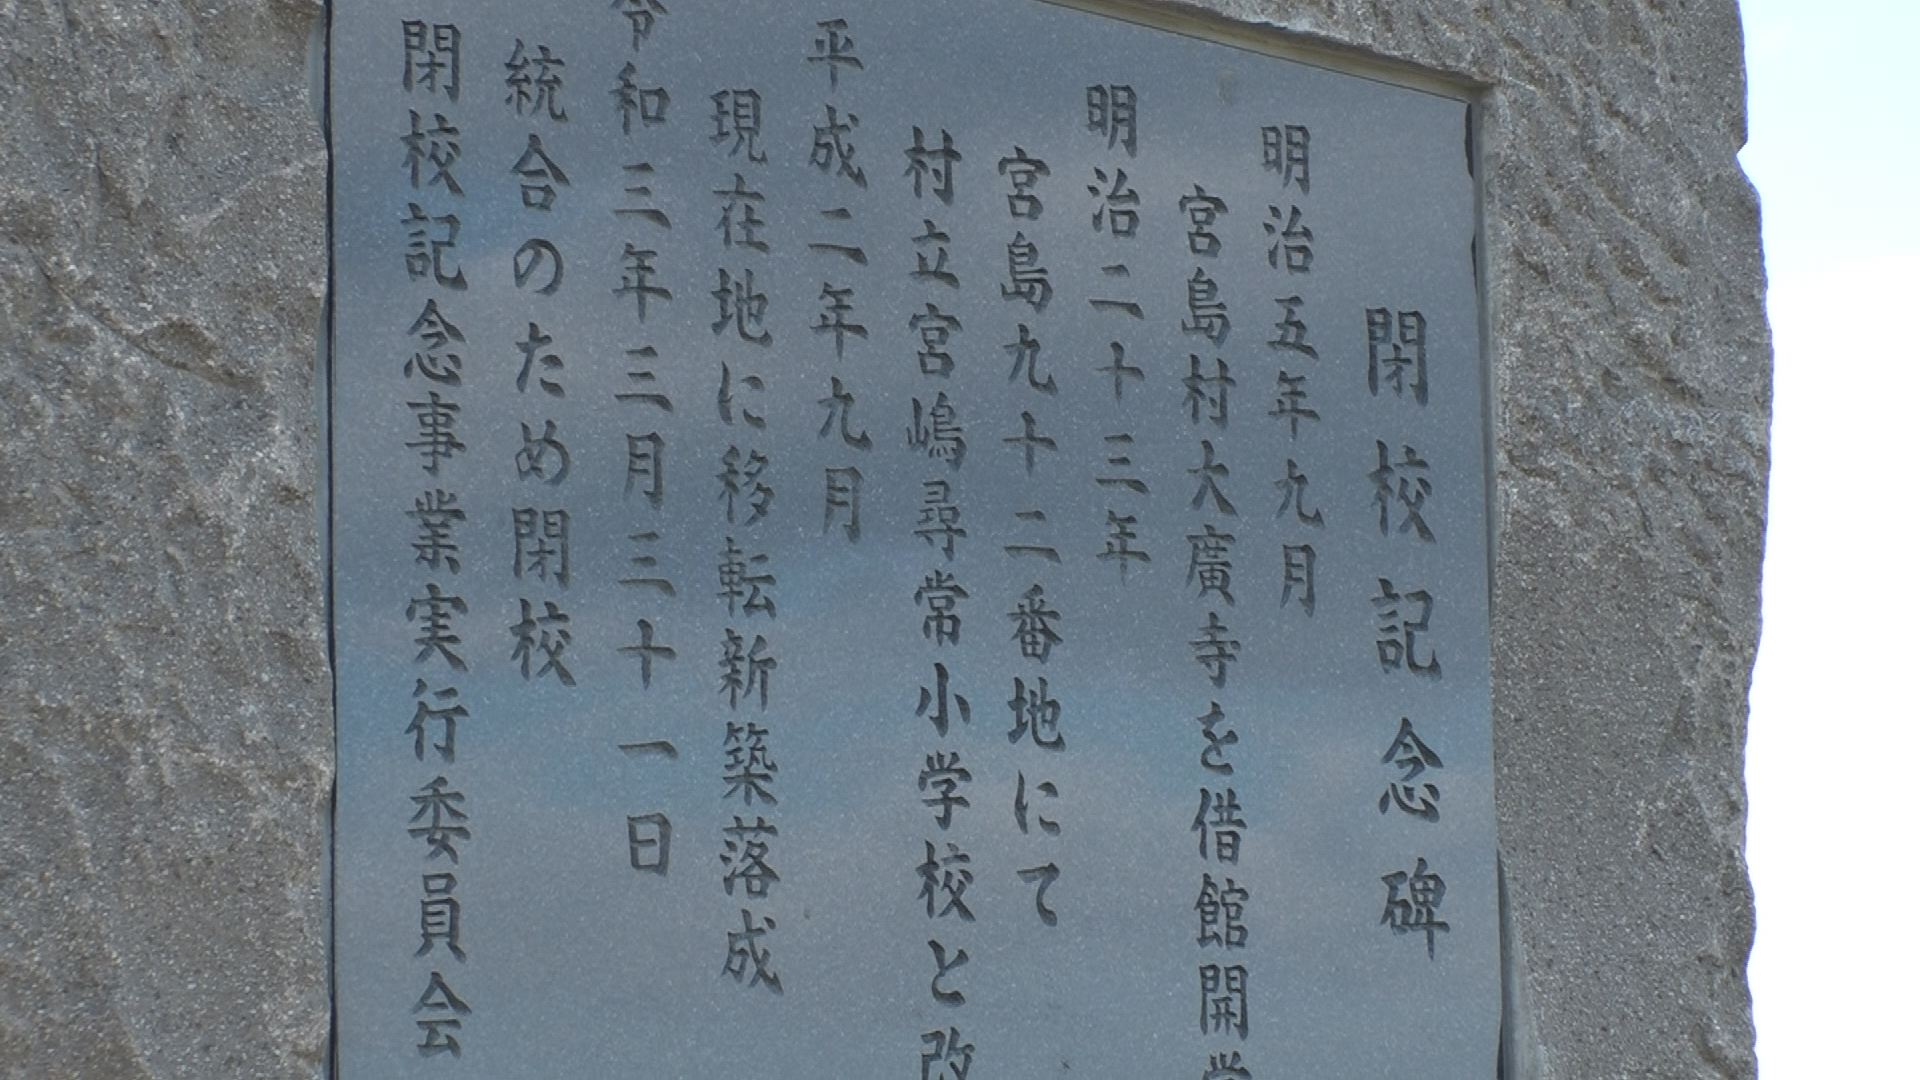 閉校記念碑
明治五年九月
宮島村大廣寺を借館開学
明治二十三年
宮島九十二番地にて
村立宮嶋尋常小学校と改
平成二年九月
現在地に移転新築落成
令和三年三月三十一日
統合のため閉校
閉校記念事業実行委員会